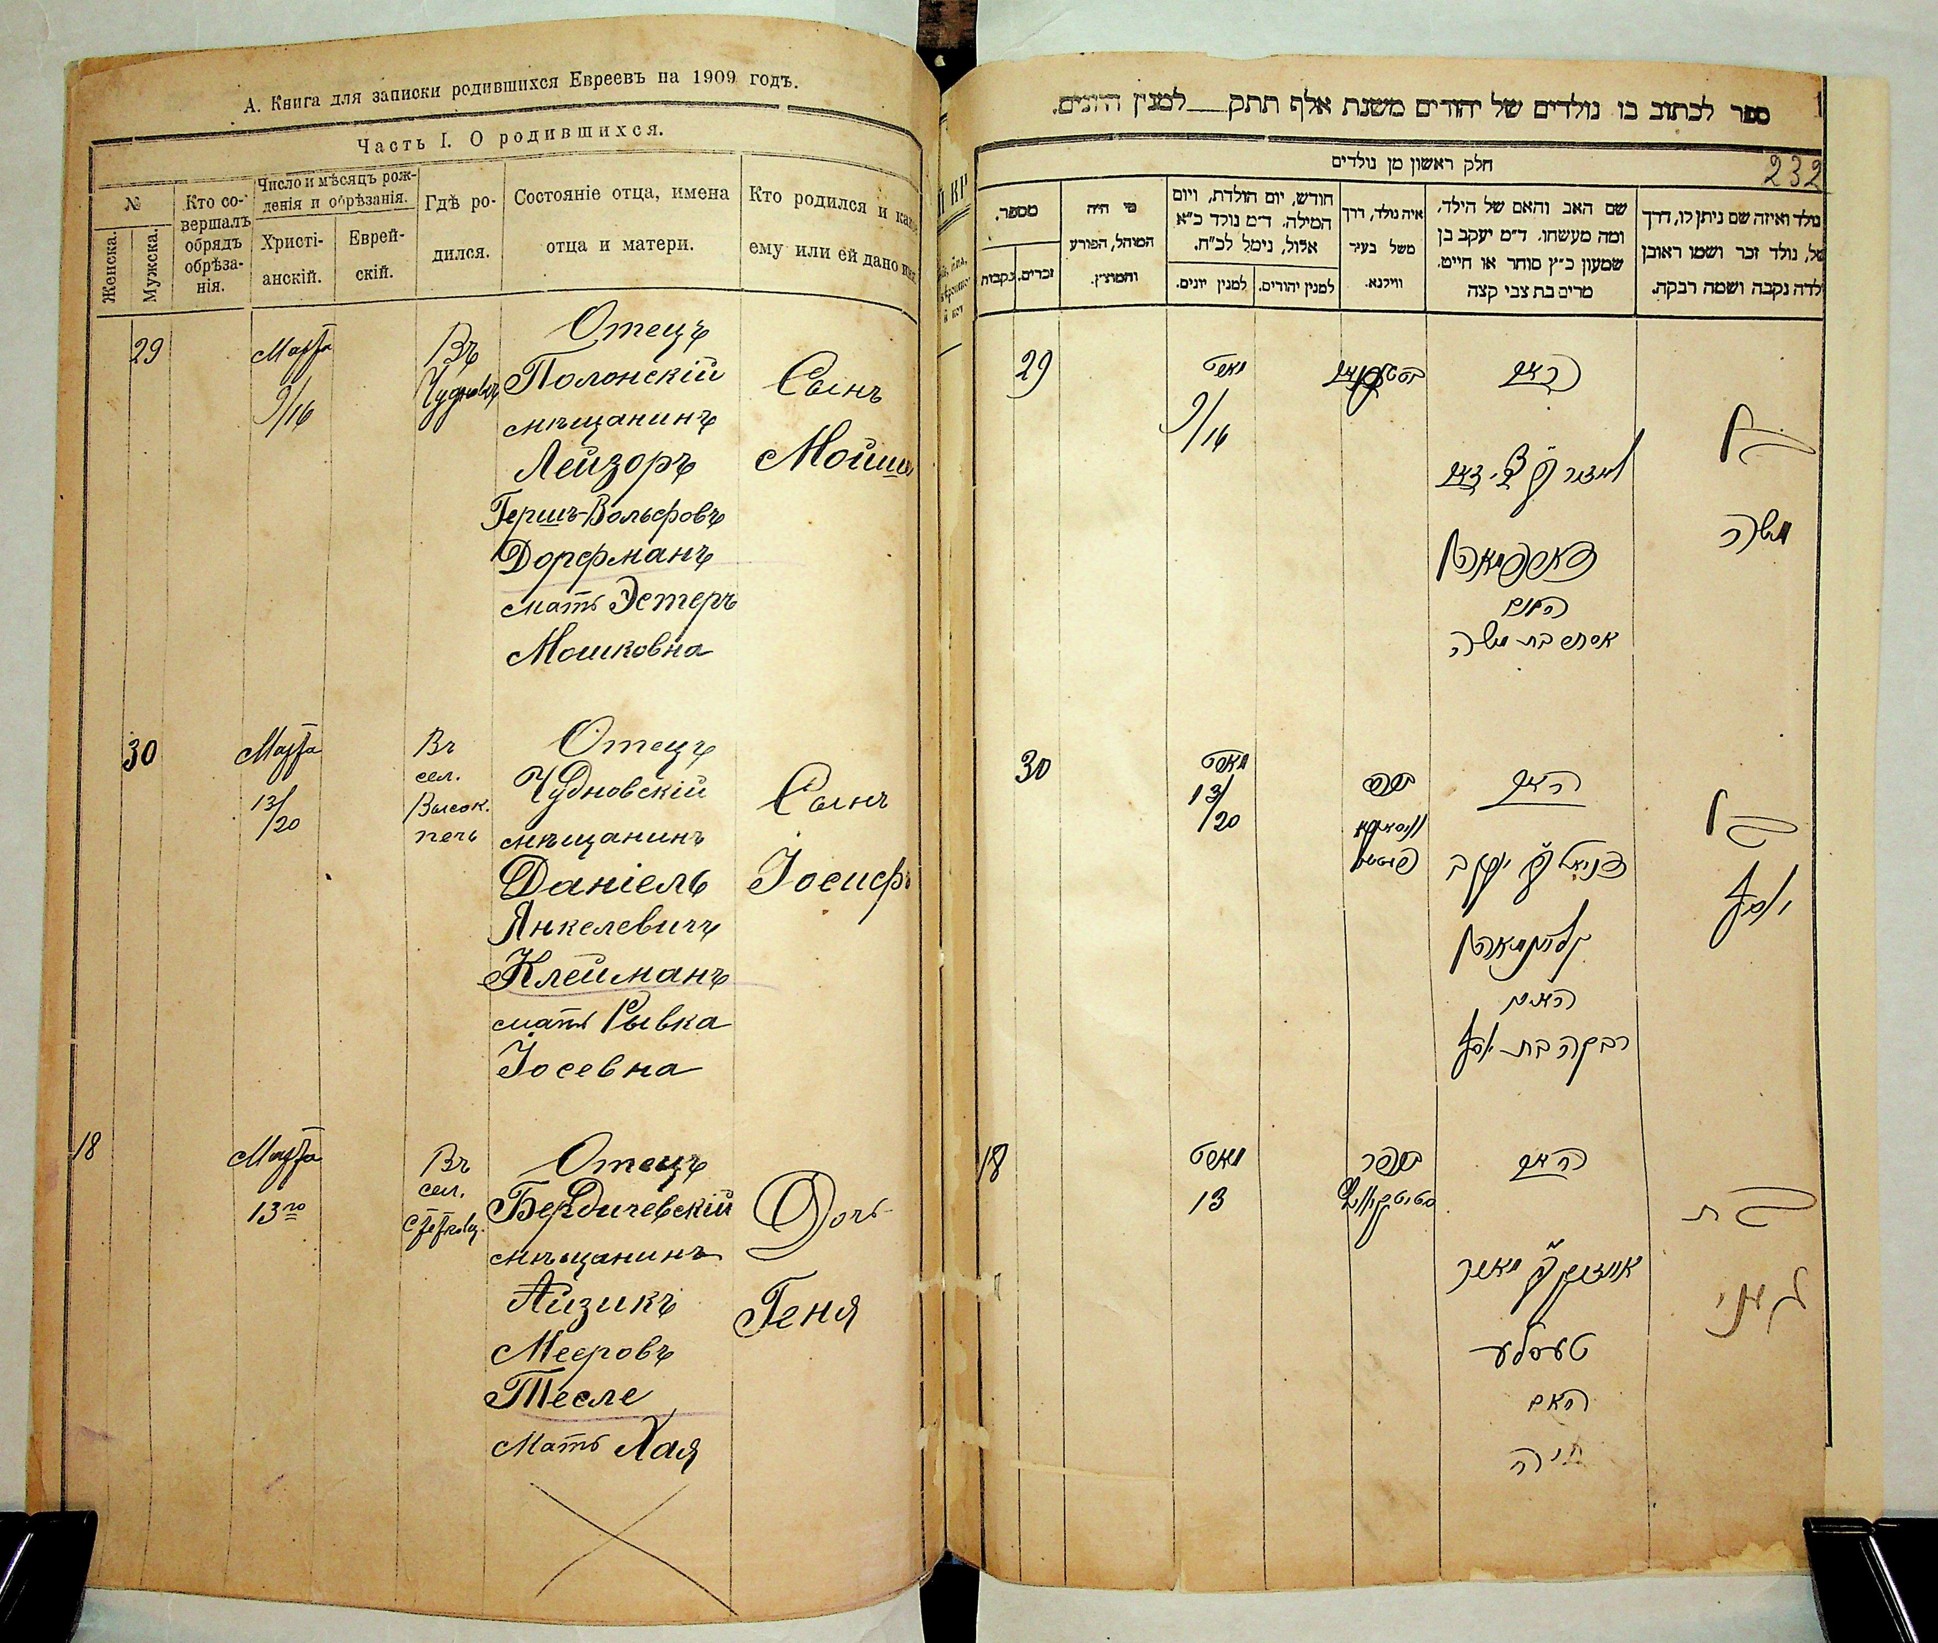 А. Книга для записки родившихся Евреевъ на 1909 годъ.
Часть I. О родившихся.
№
Женска.
Мужска.
Кто со-
вершалъ
обрядъ
обрѣза-
нія.
Число и мѣсяцъ рож-
денія и обрѣзанія.
Христі-
анскій.
Еврей-
скій.
Гдѣ ро-
дился.
Состояніе отца, имена
отца и матери.
Кто родился и как
ему или ей дано имя
29
Марта
9/16
Въ
Чудновѣ
Отецъ
Полонскій
мѣщанинъ
Лейзоръ
Гершъ-Вольфовъ
Дорфманъ
мать Эстеръ
Мошковна
Сынъ
Мойше
30
Марта
13/20
Въ
сел.
Высок.
печь
Отецъ
Чудновскій
мѣщанинъ
Даніель
Янкелевичъ
Клейманъ
мать Рывка
Іосевна
Сынъ
Іосифъ
18
Марта
13го
Въ
сел.
Отецъ
Бердичевскій
мѣщанинъ
Айзикъ
Мееровъ
Тесле
Мать Хая
Дочь
Геня
ספר לכתוב בו נולדים של יהודים משנת אלף תתק למנין היונים.
232
חלק ראשון מן נולדים
נולד ואיזה שם ניתן לו, דרך
של, נולד זכר ושמו ראובן
לדה נקבה ושמה רבקה.
שם האב והאם של הילד,
ומה מעשהו. ד״מ יעקב בן
שמעון כ״ץ סוחר או חייט,
מרים בת צבי קצה
איה נולד, דרך
משל בעיר
ווילנא.
חודש, יום תולדת, ויום
המילה. ד״מ נולד כ״א
אלול, נימל לכ״ח.
למנין יהודים.
למנין יונים.
מי היה
המוהל, הפורע
והמוצץ.
מספר.
זכרים.
נקבות
29
מארט
9/16
האב
דארפמאן
האם
אסתר בת משה
בן
משה
30
מארט
13/20
בכפר
האב
דניאל בן יעקב
קליימאן
האם
רבקה בת יוסף
בן
יוסף
18
מארט
13
בכפר
האב
אייזיק בן מאיר
טעסלע
האם
חיה
בת